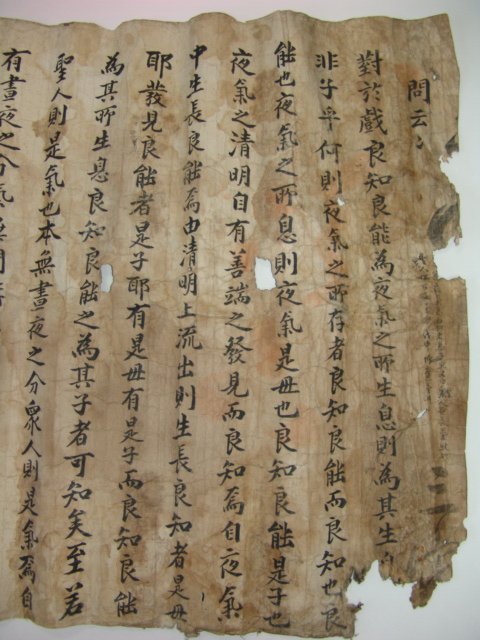 問云云
對於戲良知良能為夜氣之所生息則為其生
非子乎何則夜氣之所存者良知良能而良知也良
能也夜氣之所息則夜氣是毋也良知良能是子也
夜氣之清明自有善端之發見而良知焉自夜氣
中生長良能焉由清明上流出則生長良知者是毋
耶發見良能者是子耶有是毋有是子而良知良能
為其所生息良知良能之為其子者可知矣至若
聖人則是氣也本無晝夜之分衆人則是氣焉自
有晝夜之分氣無間